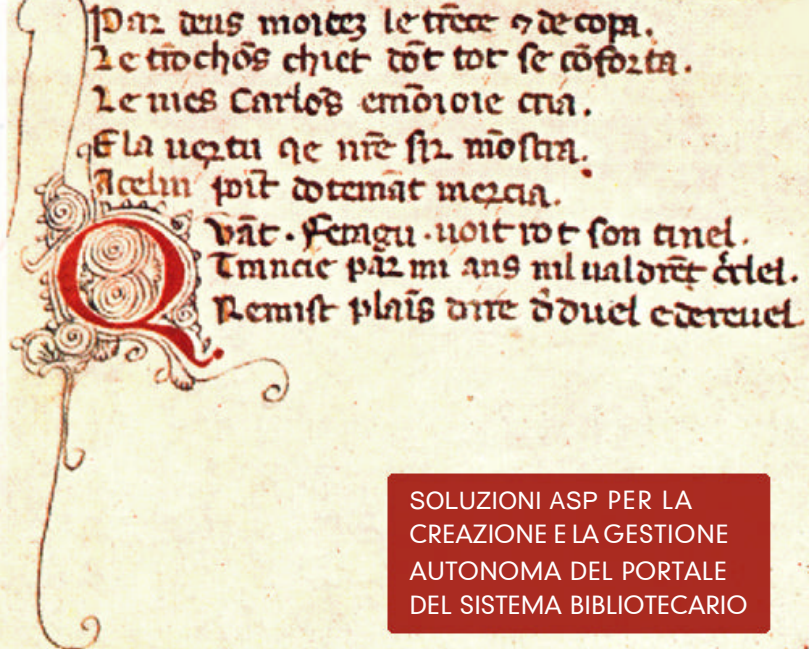 Par deus moitez le trēce ⁊ de copa.
Le trōchōs chiet dōt tot se cōforta.
Le nies Carlōs emōioie cria.
E la uertu qe nr̄e sir mōstra.
Acelin poīt dotemāt mercia.
Qvāt · Feragu · uoit rot son tinel.
Trincie par mi ans nil ualdrēt
Remist plaīs dire duel ereuel
SOLUZIONI ASP PER LA
CREAZIONE E LA GESTIONE
AUTONOMA DEL PORTALE
DEL SISTEMA BIBLIOTECARIO